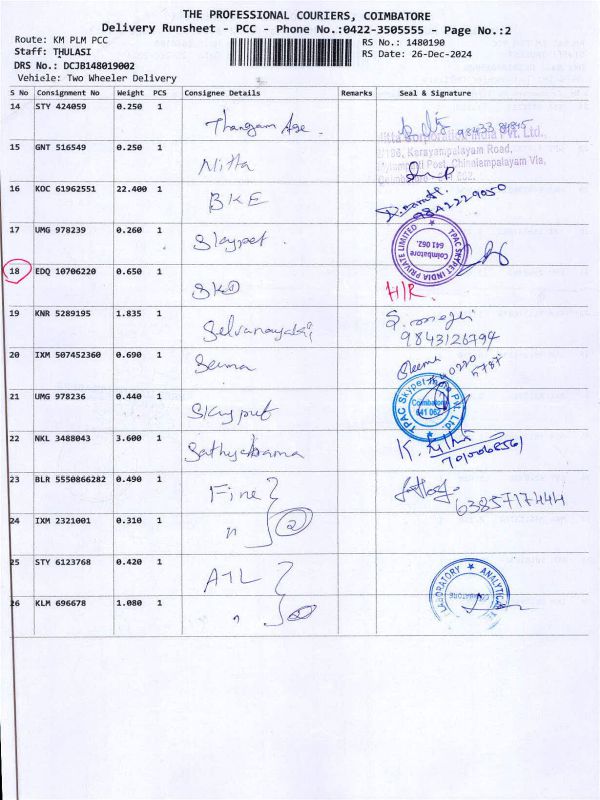 THE PROFESSIONAL COURIERS, COIMBATORE
Delivery Runsheet - PCC - Phone No.:0422-3505555 - Page No.:2
Route: KM PLM PCC
RS No.: 1480190
Staff: THULASI
RS Date: 26-Dec-2024
DRS No.: DCJB148019002
Vehicle: Two Wheeler Delivery
S No Consignment No Weight PCS Consignee Details Remarks Seal & Signature
14 STY 424059 0.250 1
Thangam Age
15 GNT 516549 0.250 1
Nitta
Kerayampalayam Road,
Post, Chinalampalayam Via,
16 KOC 61962551 22.400 1
BKE
9842229050
17 UMG 978239 0.260 1
Skypet
TPAC SKYPET INDIA PRIVATE LIMITED
Coimbatore
641 062.
18 EDQ 10706220 0.650 1
SKD H/R.
19 KNR 5289195 1.835 1
Selvanayaki
9843126794
20 IXM 507452360 0.690 1
Seema
0220
5787
21 UMG 978236 0.440 1
Skypet
TPAC Skypet India Pvt. Ltd.
Coimbatore
641 062
22 NKL 3488043 3.600 1
Sathyabama
23 BLR 5550866282 0.490 1
Fine
6385717444
24 IXM 2321001 0.310 1
" 2
25 STY 6123768 0.420 1
ATL
LABORATORY ANALYTICAL
COIMBATORE
26 KLM 696678 1.080 1
" 2